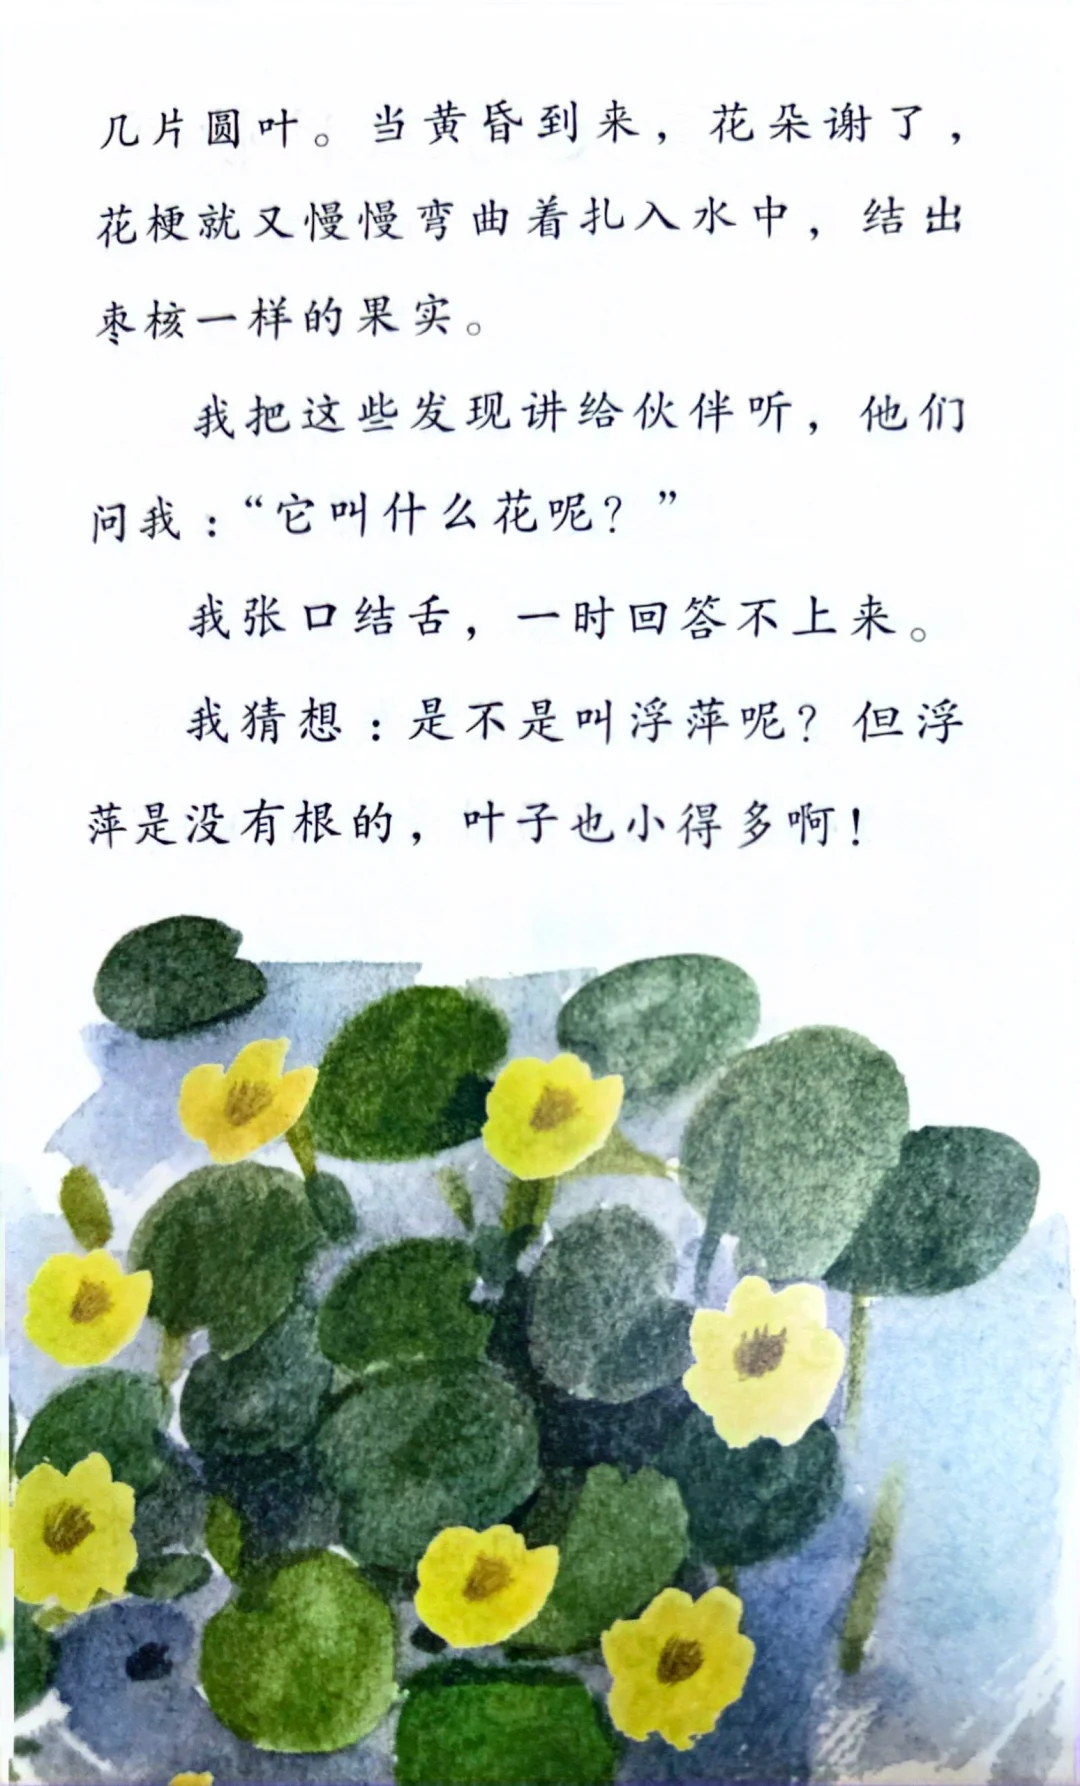 几片圆叶。当黄昏到来，花朵谢了，
花梗就又慢慢弯曲着扎入水中，结出
枣核一样的果实。
我把这些发现讲给伙伴听，他们
问我：“它叫什么花呢？”
我张口结舌，一时回答不上来。
我猜想：是不是叫浮萍呢？但浮
萍是没有根的，叶子也小得多啊！